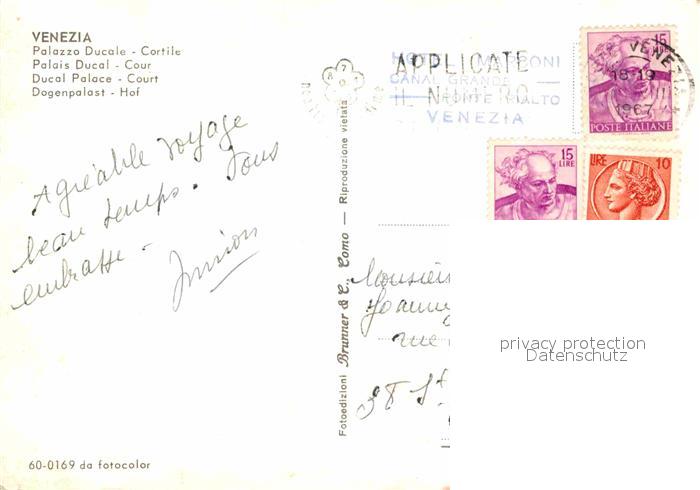 VENEZIA
Palazzo Ducale - Cortile
Palais Ducal - Cour
Ducal Palace - Court
Dogenpalast - Hof
Agréable voyage
beau temps. Vous
embrasse -
60-0169 da fotocolor
Fotoedizioni Brunner & C., Como — Riproduzione vietata
HOTEL MARCONI
CANAL GRANDE
PONTE RIALTO
VENEZIA
APPLICATE
IL NUMERO
VENEZIA
18-19
1967
15
POSTE ITALIANE
15
LIRE
LIRE 10
Monsieur
rue
38 St
privacy protection
Datenschutz